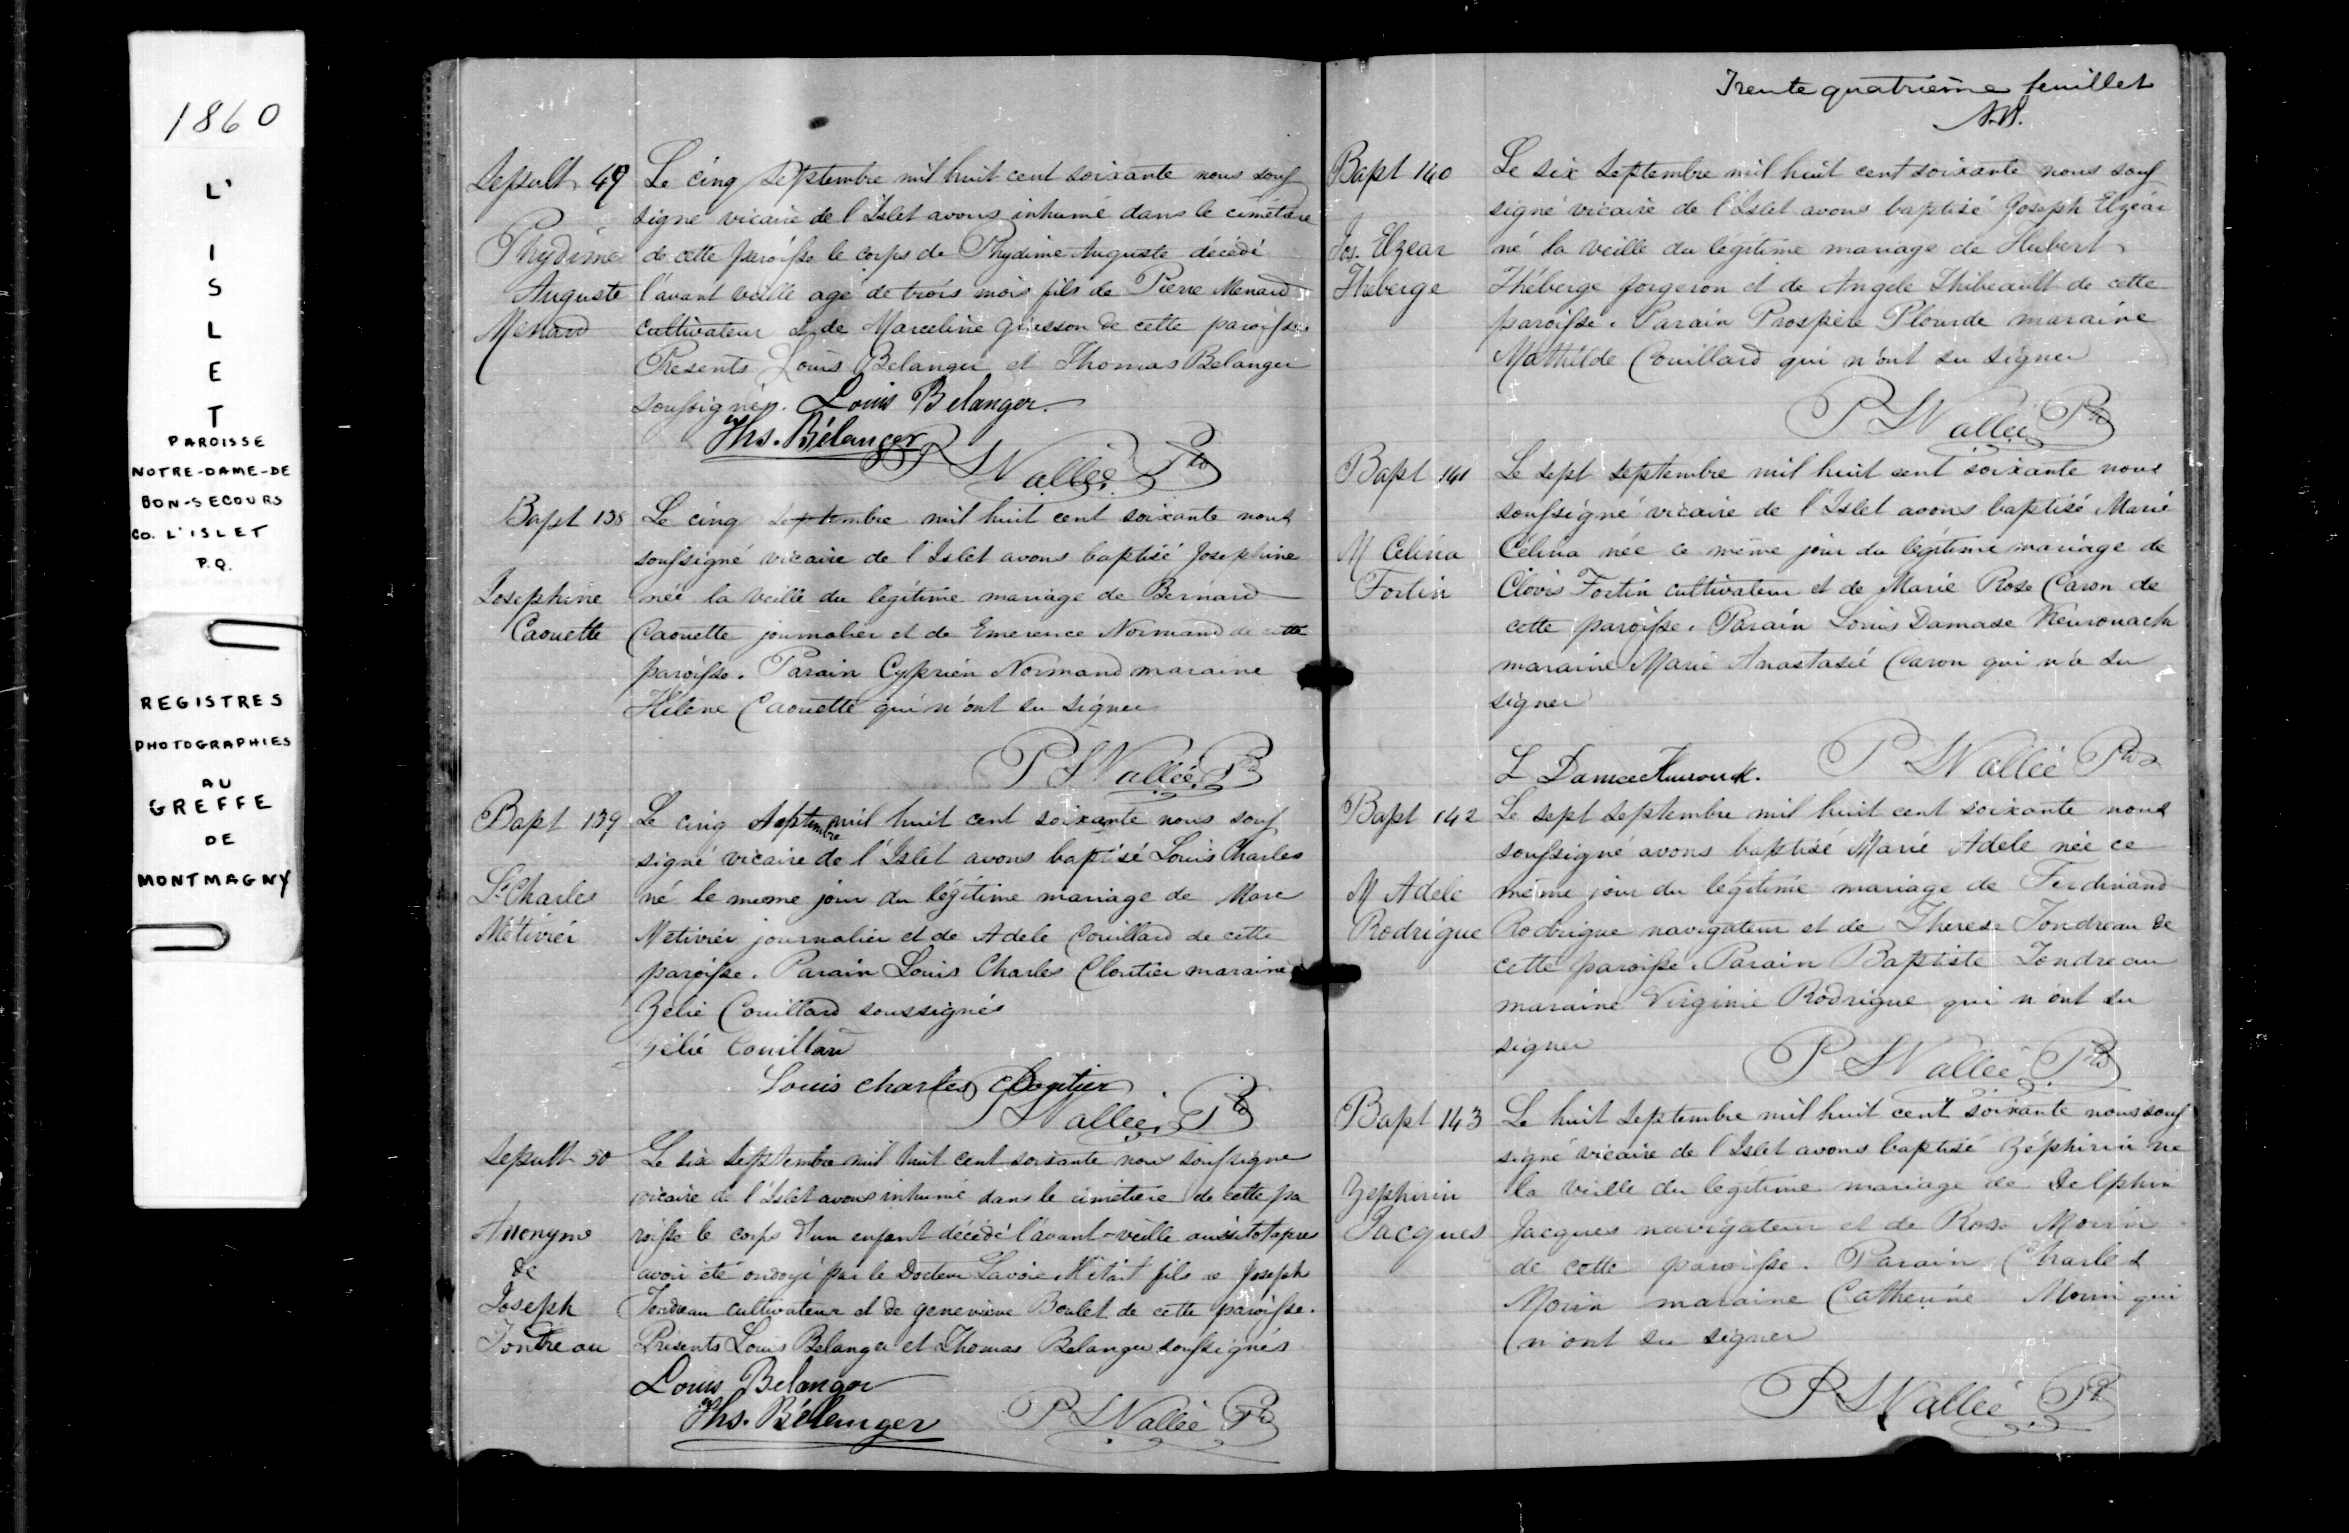 1860
L'
I
S
L
E
T
PAROISSE
NOTRE-DAME-DE
BON-SECOURS
CO. L'ISLET
P.Q.
REGISTRES
PHOTOGRAPHIES
AU
GREFFE
DE
MONTMAGNY
Sepult 49
Phydime
Auguste
Menard
Le cinq Septembre mil huit cent soixante nous souf
signé vicaire de l'Islet avons inhumé dans le cimetière
de cette paroisse le corps de Phydime Auguste décédé
l'avant veille agé de trois mois fils de Pierre Menard
cultivateur et de Marceline de cette paroisse
Presents Louis Belanger et Thomas Belanger
soussignés. Louis Belanger
Ths. Bélanger
P S Vallée Ptre
Bapt 138
Josephine
Caouette
Le cinq septembre mil huit cent soixante nous
soussigné vicaire de l'Islet avons baptisé Josephine
née la veille du légitime mariage de Bernard
Caouette journalier et de Emerence Normand de cette
paroisse. Parain Cyprien Normand maraine
Hélène Caouette qui n'ont su signer
P S Vallée Ptre
Bapt 139
Ls Charles
Métivier
Le cinq Septembre mil huit cent soixante nous sous
signé vicaire de l'Islet avons baptisé Louis Charles
né le meme jour du légitime mariage de Marc
Metivier journalier et de Adele Couillard de cette
paroisse. Parain Louis Charles Cloutier maraine
Zelie Couillard soussignés
Zélié Couillard
Louis Charles Cloutier
P S Vallée Ptre
Sepult 50
Anonyme
de
Joseph
Tondreau
Le six Septembre mil huit cent soixante nous soussigné
vicaire de l'Islet avons inhumé dans le cimetiere de cette pa
roisse le corps d'un enfant décédé l'avant-veille aussitot apres
avoir été ondoyé par le Docteur Lavoie. Il était fils de Joseph
Tondreau cultivateur et de genevieve Boulet de cette paroisse.
Présents Louis Belanger et Thomas Belanger soussignés
Louis Belanger
Ths. Bélanger
P S Vallée Ptre
Trente quatrième feuillet
Bapt 140
Jos. Elzear
Theberge
Le six Septembre mil huit cent soixante nous souf
signé vicaire de l'Islet avons baptisé Joseph Elzéar
né la veille du legitime mariage de Hubert
Théberge forgeron et de Angele Thibeault de cette
paroisse. Parain Prospère Plourde maraine
Mathilde Couillard qui n'ont su signer
P S Vallée Ptre
Bapt 141
M Celina
Fortin
Le sept septembre mil huit cent soixante nous
soussigné vicaire de l'Islet avons baptisé Marie
Célina née ce même jour du légitime mariage de
Clovis Fortin cultivateur et de Marie Rose Caron de
cette paroisse. Parain Louis Damase
maraine Marie Anastasie Caron qui n'a su
signer
P S Vallée Ptre
Bapt 142
M Adele
Rodrigue
Le sept septembre mil huit cent soixante nous
soussigné avons baptisé Marie Adele née ce
même jour du légitime mariage de Ferdinand
Rodrigue navigateur et de Therese Tondreau de
cette paroisse. Parain Baptiste Tondreau
maraine Virginie Rodrigue qui n'ont su
signer
P S Vallée Ptre
Bapt 143
Zephirin
Jacques
Le huit septembre mil huit cent soixante nous souf
signé vicaire de l'Islet avons baptisé Zéphirin né
la veille du legitime mariage de Delphin
Jacques navigateur et de Rose Morin
de cette paroisse. Parain Charles
Morin maraine Catherine Morin qui
n'ont su signer
P S Vallée Ptre